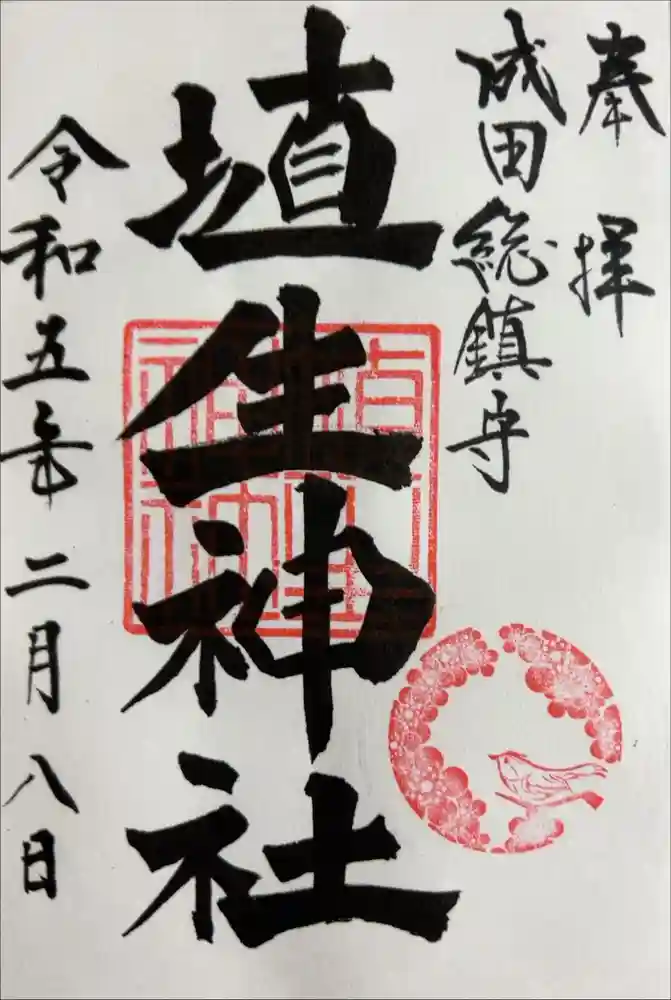 奉拝
成田総鎮守
埴生神社
令和五年二月八日